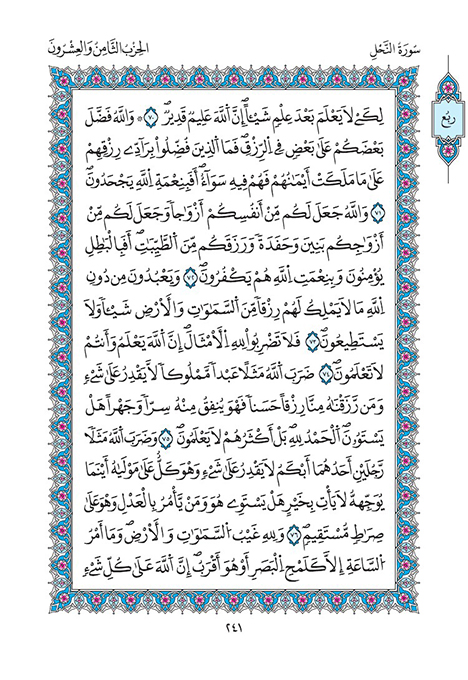 سُورَةُ النَّحْلِ
الحِزْبُ الثَّامِنُ وَالعِشْرُونَ
رُبُع
لِكَيْ لَا يَعْلَمَ بَعْدَ عِلْمٍ شَيْـًٔاۖ إِنَّ ٱللَّهَ عَلِيمٞ قَدِيرٞۖ ٧٠ ۞ وَٱللَّهُ فَضَّلَ
بَعْضَكُمْ عَلَىٰ بَعْضٍ فِي ٱلرِّزْقِۖ فَمَا ٱلَّذِينَ فُضِّلُوا۟ بِرَآدِّي رِزْقِهِمْ
عَلَىٰ مَا مَلَكَتْ أَيْمَٰنُهُمْ فَهُمْ فِيهِ سَوَآءٌۖ أَفَبِنِعْمَةِ ٱللَّهِ يَجْحَدُونَۖ
٧١ وَٱللَّهُ جَعَلَ لَكُم مِّنْ أَنفُسِكُمْ أَزْوَٰجٗا وَجَعَلَ لَكُم مِّنْ
أَزْوَٰجِكُم بَنِينَ وَحَفَدَةٗ وَرَزَقَكُم مِّنَ ٱلطَّيِّبَٰتِۖ أَفَبِٱلْبَٰطِلِ
يُؤْمِنُونَ وَبِنِعْمَتِ ٱللَّهِ هُمْ يَكْفُرُونَۖ ٧٢ وَيَعْبُدُونَ مِن دُونِ
ٱللَّهِ مَا لَا يَمْلِكُ لَهُمْ رِزْقٗا مِّنَ ٱلسَّمَٰوَٰتِ وَٱلْأَرْضِ شَيْـًٔا وَلَا
يَسْتَطِيعُونَۖ ٧٣ فَلَا تَضْرِبُوا۟ لِلَّهِ ٱلْأَمْثَالَۖ إِنَّ ٱللَّهَ يَعْلَمُ وَأَنتُمْ
لَا تَعْلَمُونَۖ ٧٤ ضَرَبَ ٱللَّهُ مَثَلًا عَبْدٗا مَّمْلُوكٗا لَّا يَقْدِرُ عَلَىٰ شَيْءٖ
وَمَن رَّزَقْنَٰهُ مِنَّا رِزْقًا حَسَنٗا فَهُوَ يُنفِقُ مِنْهُ سِرّٗا وَجَهْرًا هَلْ
يَسْتَوُۥنَۖ ٱلْحَمْدُ لِلَّهِۖ بَلْ أَكْثَرُهُمْ لَا يَعْلَمُونَۖ ٧٥ وَضَرَبَ ٱللَّهُ مَثَلٗا
رَّجُلَيْنِ أَحَدُهُمَآ أَبْكَمُ لَا يَقْدِرُ عَلَىٰ شَيْءٖ وَهُوَ كَلٌّ عَلَىٰ مَوْلَىٰهُ أَيْنَمَا
يُوَجِّههُّ لَا يَأْتِ بِخَيْرٍۖ هَلْ يَسْتَوِي هُوَ وَمَن يَأْمُرُ بِٱلْعَدْلِ وَهُوَ عَلَىٰ
صِرَٰطٖ مُّسْتَقِيمٖۖ ٧٦ وَلِلَّهِ غَيْبُ ٱلسَّمَٰوَٰتِ وَٱلْأَرْضِۖ وَمَآ أَمْرُ
ٱلسَّاعَةِ إِلَّا كَلَمْحِ ٱلْبَصَرِ أَوْ هُوَ أَقْرَبُۖ إِنَّ ٱللَّهَ عَلَىٰ كُلِّ شَيْءٖ
٢٤١